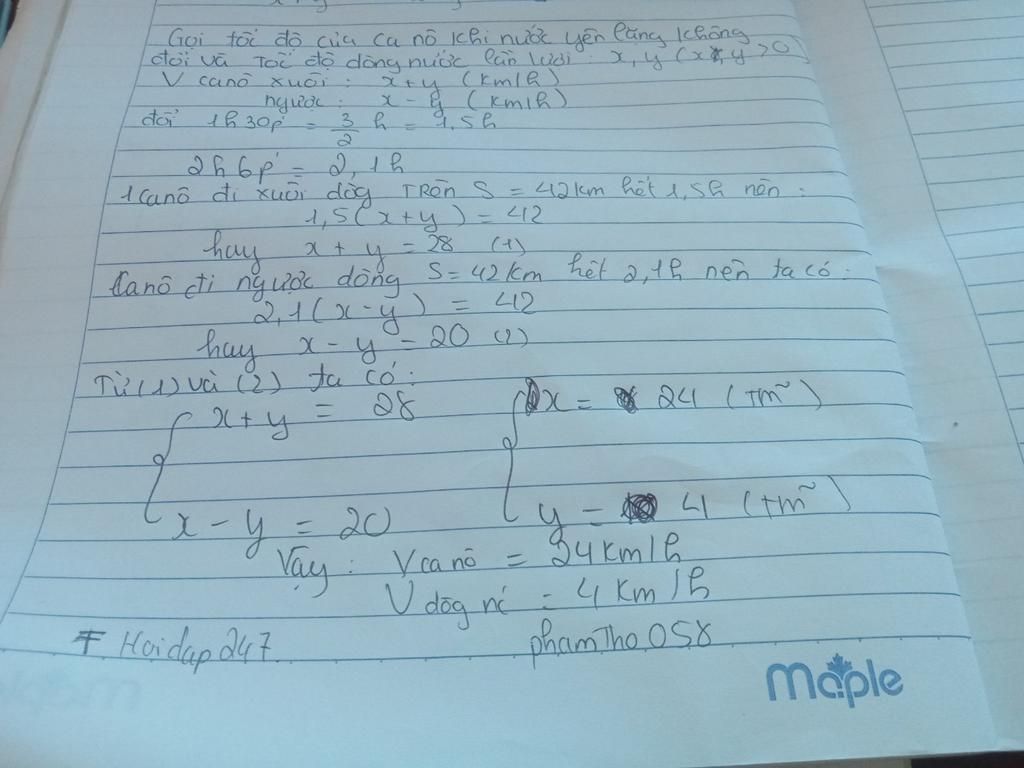 Gọi tốc độ của ca nô khi nước yên lặng không
đổi và tốc độ dòng nước lần lượt : x, y (x, y > 0
V canô xuôi : x+y (km/h)
ngược : x-y (km/h)
đổi 1h30p' = 3/2 h = 1,5h
2h6p' = 2,1h
1 canô đi xuôi dòg trên S = 42km hết 1,5h nên :
1,5(x+y) = 42
hay x+y = 28 (1)
Canô đi ngược dòng S=42km hết 2,1h nên ta có :
2,1(x-y) = 42
hay x-y = 20 (2)
Từ (1) và (2) ta có :
x+y = 28 x = 24 (tm~)
x-y = 20 y = 4 (tm~)
Vậy : V canô = 24km/h
V dòg nc' = 4 km/h
Hoidap247 phamTho058
maple